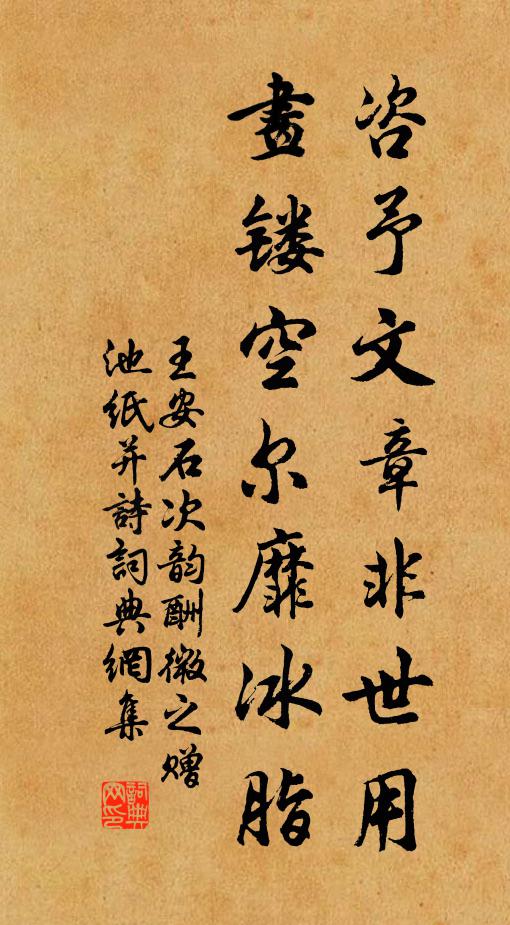 咨予文章非世用
畫镂空尔靡冰脂
王安石次韵酬微之赠
池紙并詩詞典網集
詞典网印